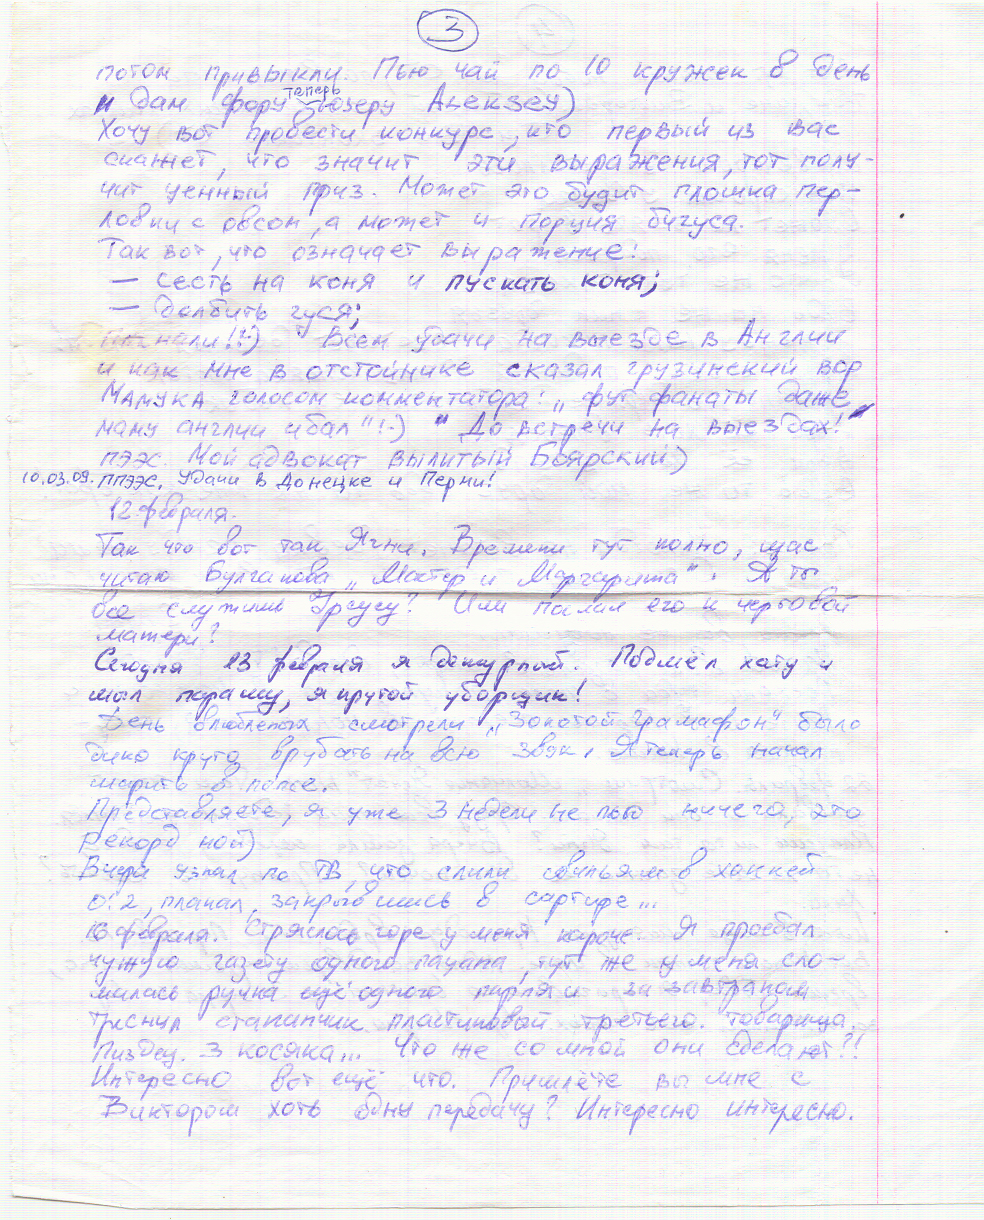 3
потом привыкли. Пью чай по 10 кружек в день
и дам фору теперь юзеру Aleksey)
Хочу вот провести конкурс, кто первый из вас
скажет, что значит эти выражения, тот полу-
чит ценный приз. Может это будит плошка пер-
ловки с овсом, а может и порция бигуса.
Так вот, что означает выражение:
— сесть на коня и пускать коня;
— долбить гуся;
Погнали!!:) Всем удачи на выезде в Англии
и как мне в отстойнике сказал грузинский вор
Мамука голосом комментатора: „фут фанаты даже
маму англии ибал"!:) До встречи на выездах!
пэзс. Мой адвокат вылитый Боярский)
10.03.09. ппээс. Удачи в Донецке и Перми!
12 февраля.
Так что вот так Ячни. Времени тут полно, щас
читаю Булгакова „Мастер и Маргарита". А ты
все служишь Ургусу? Или послал его к чертовой
матери?
Сегодня 13 февраля я дежурный. Подмёл хату и
мыл парашу, я крутой уборщик!
День влюбленых смотрели „Золотой Грамафон" было
дико круто врубать на всю звук. Я теперь начал
шарить в попсе.
Представляете, я уже 3 недели не пью ничего, это
рекорд мой)
Вчера узнал по ТВ, что слили свиньям в хоккей
0:2, плакал, закрывшись в сортире...
16 февраля. Стряслось горе у меня короче. Я проебал
чужую газету одного пацана, тут же у меня сло-
малась ручка ещё одного парня и за завтраком
треснул стаканчик пластиковый третьего товарища.
Пиздец. 3 косяка... Что же со мной они сделают?!
Интересно вот ещё что. Пришлёте вы мне с
Виктором хоть одну передачу? Интересно интересно.